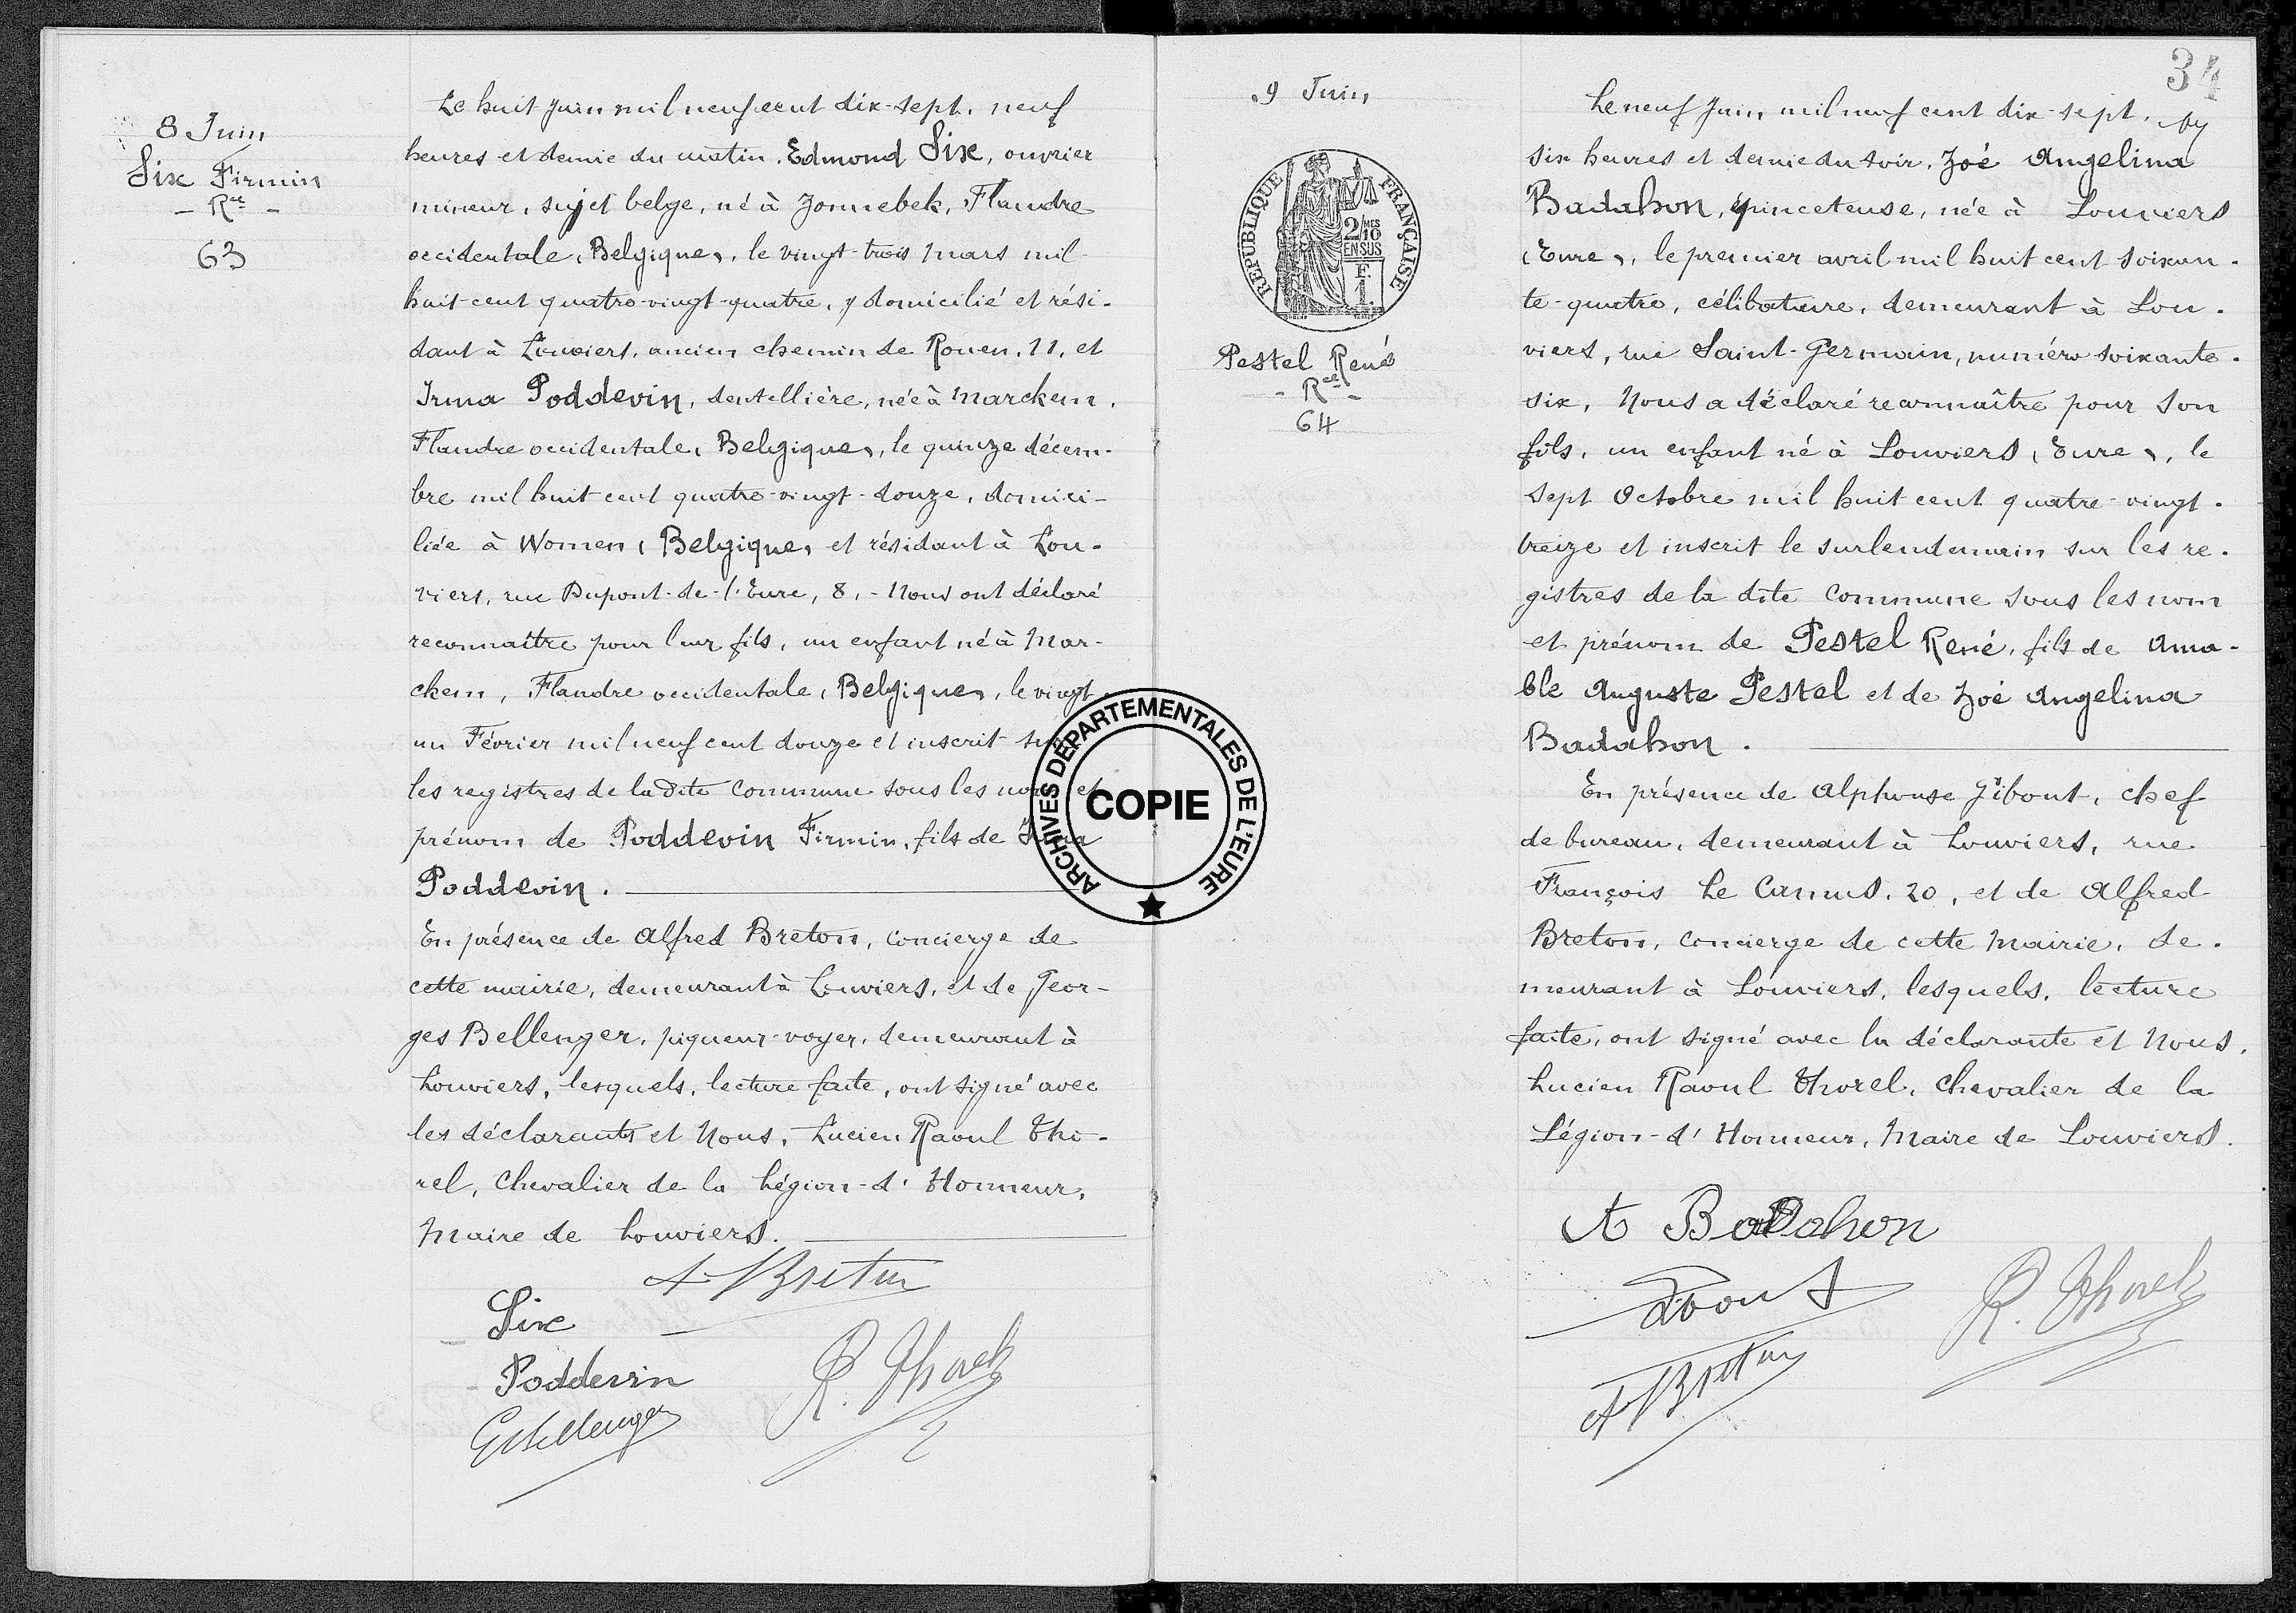 8 Juin
Six Firmin
- Rce -
63
Le huit Juin mil neuf cent dix-sept, neuf
heures et demie du matin, Edmond Six, ouvrier
mineur, sujet belge, né à Zonnebek, Flandre
occidentale (Belgique), le vingt-trois Mars mil-
huit-cent quatre-vingt-quatre, y domicilié et rési-
dant à Louviers, ancien chemin de Rouen, 11, et
Irma Poddevin, dentellière, née à Marckem,
Flandre occidentale (Belgique), le quinze décem-
bre mil huit cent quatre-vingt-douze, domici-
liée à Women (Belgique) et résidant à Lou-
viers, rue Dupont-de-l'Eure, 8, - Nous ont déclaré
reconnaître pour leur fils, un enfant né à Mar-
ckem, Flandre occidentale (Belgique), le vingt-
un Février mil neuf cent douze et inscrit sur
les registres de la dite commune sous les nom et
prénom de Poddevin Firmin, fils de Irma
Poddevin.
En présence de Alfred Breton, concierge de
cette mairie, demeurant à Louviers, et de Geor-
ges Bellenger, piqueur-voyer, demeurant à
Louviers, lesquels, lecture faite, ont signé avec
les déclarants et Nous, Lucien Raoul Tho-
rel, Chevalier de la Légion-d'Honneur,
Maire de Louviers.
A Breton
Six
Poddevin
R. Thorel
G Bellenger
34
9 Juin
RÉPUBLIQUE FRANÇAISE
2/10 MES
EN SUS
F.
1
Pestel René
- Rce -
64
Le neuf Juin mil neuf cent dix-sept,
six heures et demie du soir, Zoé Angelina
Badahon, épinceteuse, née à Louviers
(Eure), le premier avril mil huit cent soixan-
te-quatre, célibataire, demeurant à Lou-
viers, rue Saint-Germain, numéro soixante-
six, Nous a déclaré reconnaître pour son
fils, un enfant né à Louviers (Eure), le
sept Octobre mil huit cent quatre-vingt-
treize et inscrit le surlendemain sur les re-
gistres de la dite commune sous les nom
et prénom de Pestel René, fils de Ama-
ble Auguste Pestel et de Zoé Angelina
Badahon.
En présence de Alphonse Gibout, chef
de bureau, demeurant à Louviers, rue
François Le Camus, 20, et de Alfred
Breton, concierge de cette Mairie, de-
meurant à Louviers, lesquels, lecture
faite, ont signé avec la déclarante et Nous,
Lucien Raoul Thorel, Chevalier de la
Légion-d'Honneur, Maire de Louviers.
A Badahon
Gibout
R. Thorel
A Breton
ARCHIVES DÉPARTEMENTALES DE L'EURE
COPIE